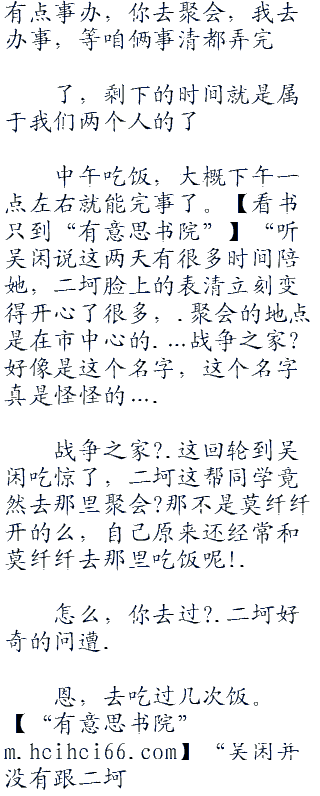 有点事办，你去聚会，我去
办事，等咱俩事清都弄完
了，剩下的时间就是属
于我们两个人的了
中午吃饭，大概下午一
点左右就能完事了。【看书
只到“有意思书院”】“听
吴闲说这两天有很多时间陪
她，二坷脸上的表清立刻变
得开心了很多，.聚会的地点
是在市中心的....战争之家?
好像是这个名字，这个名字
真是怪怪的....
战争之家?.这回轮到吴
闲吃惊了，二坷这帮同学竟
然去那里聚会?那不是莫纤纤
开的么，自己原来还经常和
莫纤纤去那里吃饭呢!.
怎么，你去过?.二坷好
奇的问遭.
恩，去吃过几次饭。
【“有意思书院”
m.hcihci66.com】“吴闲并
没有跟二坷